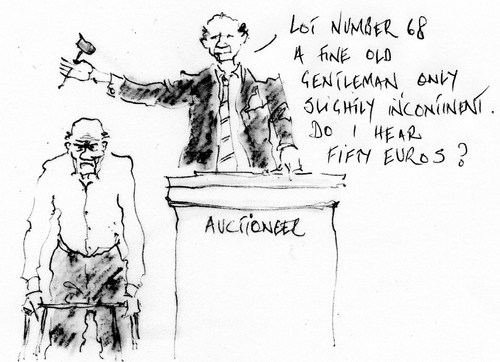 LOT NUMBER 68
A FINE OLD
GENTLEMAN, ONLY
SLIGHTLY INCONTINENT.
DO I HEAR
FIFTY EUROS?
AUCTIONEER